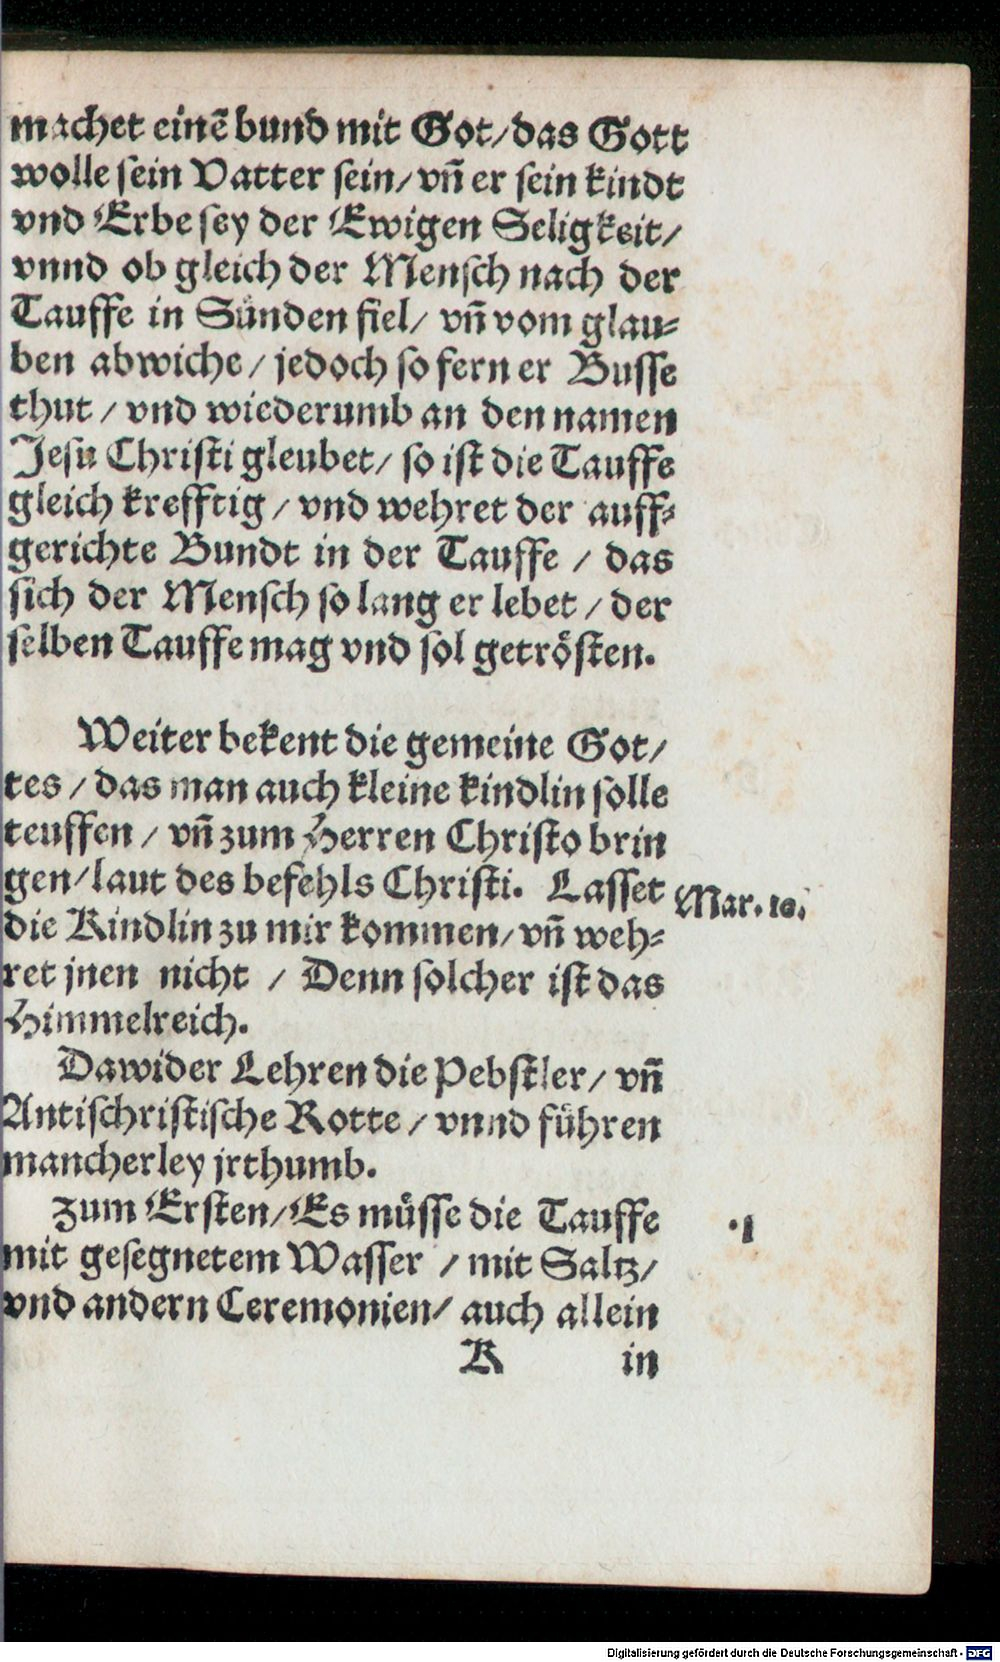 machet einẽ bund mit Got/das Gott
wolle sein Vatter sein/vñ er sein kindt
vnd Erbe sey der Ewigen Seligkeit/
vnnd ob gleich der Mensch nach der
Tauffe in Sünden fiel/ vñ vom glau-
ben abwiche / jedoch so fern er Busse
thut / vnd wiederumb an den namen
Jesu Christi gleubet/ so ist die Tauffe
gleich krefftig / vnd wehret der auff-
gerichte Bundt in der Tauffe / das
sich der Mensch so lang er lebet / der
selben Tauffe mag vnd sol getrösten.
Weiter bekent die gemeine Got/
tes / das man auch kleine kindlin solle
teuffen / vñ zum Herren Christo brin
gen/laut des befehls Christi. Lasset
Mar. 10.
die Kindlin zu mir kommen/ vñ weh-
ret jnen nicht / Denn solcher ist das
Himmelreich.
Dawider Lehren die Pebstler/ vñ
Antischristische Rotte / vnnd führen
mancherley jrthumb.
Zum Ersten/Es müsse die Tauffe
.1
mit gesegnetem Wasser / mit Saltz/
vnd andern Ceremonien/ auch allein
K in
Digitalisierung gefördert durch die Deutsche Forschungsgemeinschaft - DFG